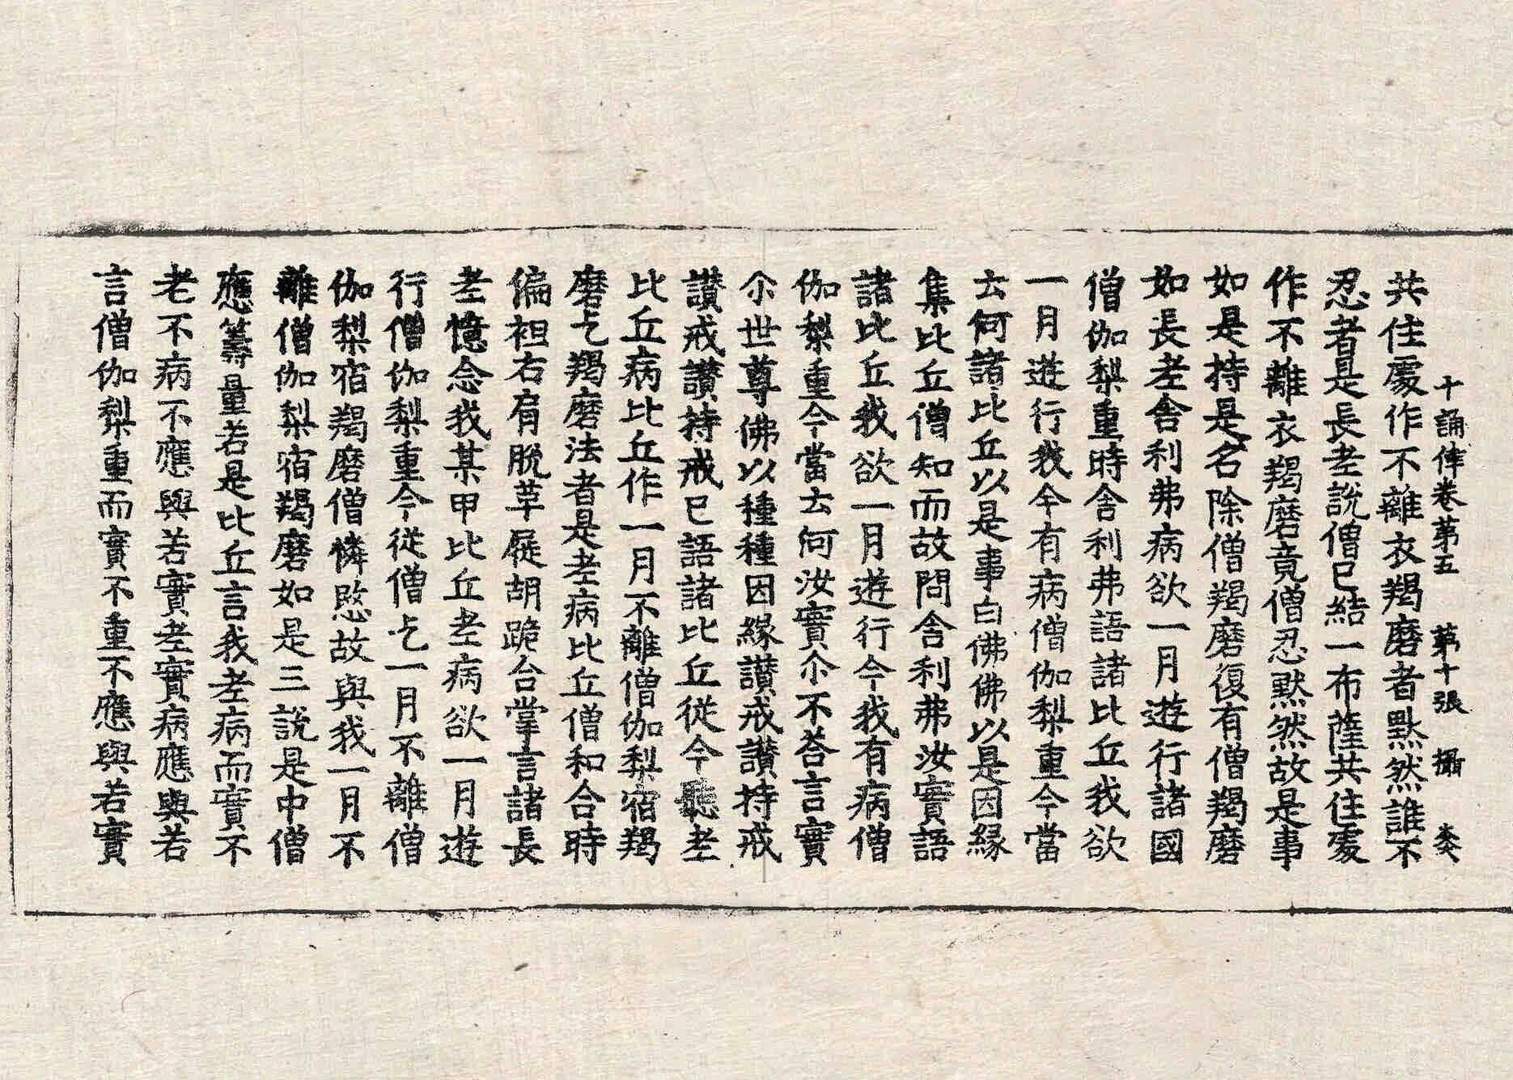 十誦律卷第五　第十張　攝
共住處作不離衣羯磨者黙然誰不
忍者是長老說僧已結一布薩共住處
作不離衣羯磨竟僧忍黙然故是事
如是持是名除僧羯磨復有僧羯磨
如長老舎利弗病欲一月遊行諸國
僧伽梨重時舎利弗語諸比丘我欲
一月遊行我今有病僧伽梨重今當
云何諸比丘以是事白佛佛以是因緣
集比丘僧知而故問舎利弗汝實語
諸比丘我欲一月遊行今我有病僧
伽梨重今當云何汝實尒不荅言實
尒世尊佛以種種因緣讃戒讃持戒
讃戒讃持戒已語諸比丘從今聽老
比丘病比丘作一月不離僧伽梨宿羯
磨乞羯磨法者是老病比丘僧和合時
偏袒右肩脫革屣胡跪合掌言諸長
老憶念我某甲比丘老病欲一月遊
行僧伽梨重今從僧乞一月不離僧
伽梨宿羯磨僧憐愍故與我一月不
離僧伽梨宿羯磨如是三說是中僧
應籌量若是比丘言我老病而實不
老不病不應與若實老實病應與若
言僧伽梨重而實不重不應與若實